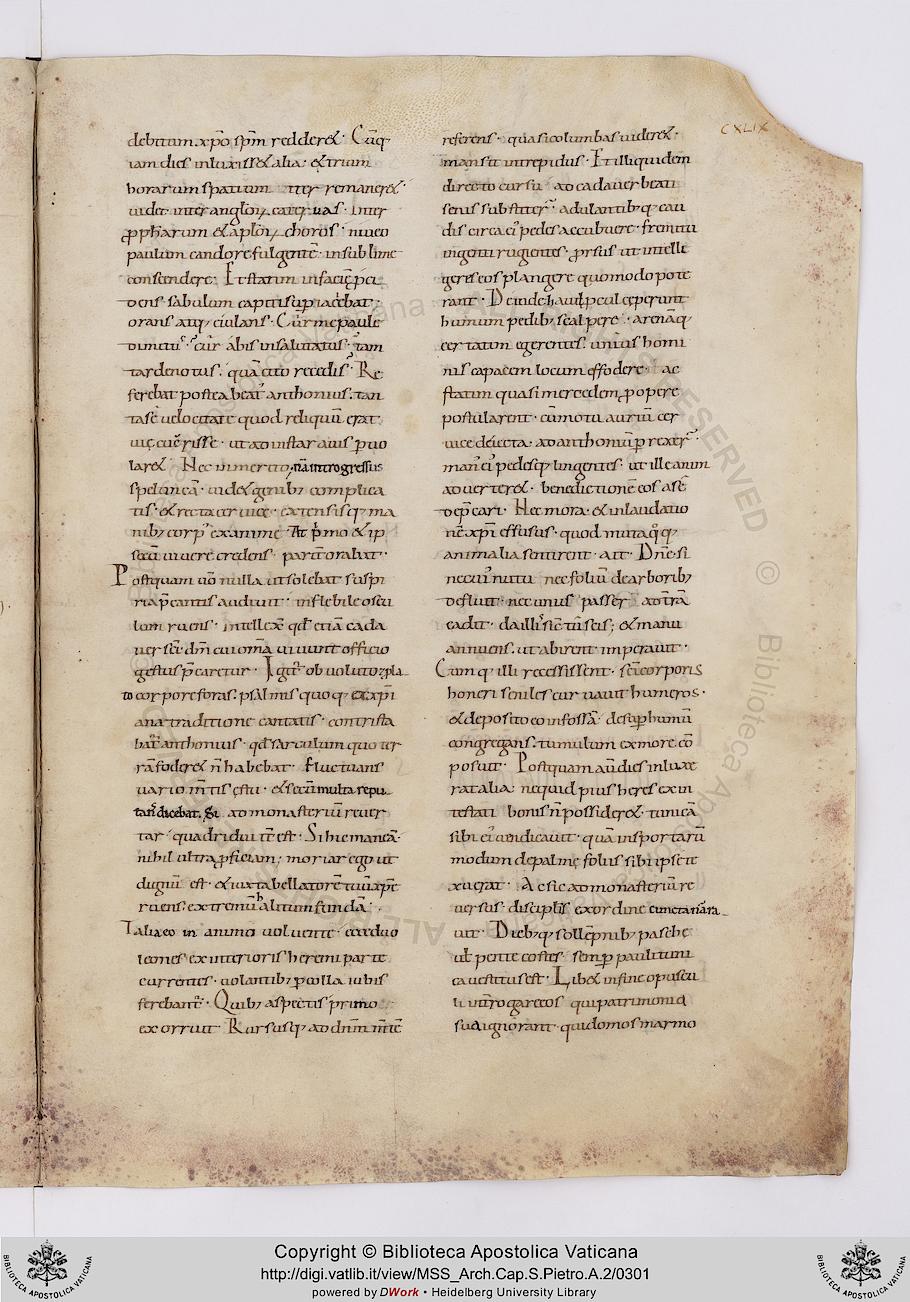 CXLIX
debitum xp̄o sp̄m redder&. Cūq;
iam dies inluxiss& alia. & trium
horarum spatium iter remaner&.
uidit inter anglōꝝ cateruas. inter
ꝓph&arum & aplōꝝ choros. niueo
paulum candore fulgentē. in sublime
conscendere. Et statim in faciē p̄ci
dens. sabulum capiti sup iaciebat.
orans atq; eiulans. Cur me paule
dimittis. cur abis insalutatus. tam
tarde notus. quā cito recedis. Re
ferebat postea beat' anthonius. tan
ta sē uelocitate quod reliquū erat
uię cucurrisse. ut ad instar auis puo
lar&. Nec inmerito. nā introgressus
speluncā. uid& genib; complica
tis. & recta ceruice. extensisq; ma
nib; corp' exanime. At primo & ip
sum uiuere credens. pariter orabat.
Postquam uō nulla ut solebat suspi
ria p̄cantis audiuit. in flebile oscu
lum ruens. intellex& qd̄ etiā cada
uer sc̄i dm̄ cui omā uiuunt officio
gestus p̄caretur. Igit' obuoluto & pla
to corpore foras. psalmis quoq; ex xp̄i
ana traditione cantatis. contrista
bat' anthonius. qd̄ sarculum quo ter
rā foder& n̄ habebat. Fluctuans
uario m̄tis ęstu. & secū multa repu
tans dicebat. Si ad monasteriū reuer
tar. quadridui iter est. Si hic maneā.
nihil ultra ꝓficiam. moriar ego ut
dignū est. & iuxta bellatorē tuū xp̄e
ruens. extremū halitum fundā.
Talia eo in animo uoluente. ecce duo
leones ex interioris heremi parte
currentes. uolantib; p colla iubis
ferebant'. Quib; aspectis primo
exorruit. Rursusq; ad dn̄m m̄tē
referens. quasi columbas uider&.
mansit intrepidus. Et illi quidem
directo cursu. ad cadauer beati
senis substiter'. adulantib; q; cau
dis circa ei' pedes accubuere. fremitu
ingenti rugientes. ꝓrsus ut intelle
geres eos plangere quomodo pote
rant. Deinde haut pcul ceperunt
humum pedib; scalpere. arenāq;
certatim egerentes. unius homi
nis capacem locum effodere. ac
statim quasi mercedem ꝓ opere
postularent. cū motu auriū cer
uice deiecta. ad anthoniū prexer'.
man' ei' pedesq; lingentes. ut ille anim
aduerter&. benedictionē eos a sē
dep̄cari. Nec mora. & in laudatio
nē xp̄i effusus. quod muta qq;
animalia sentirent. ait. Dn̄e si
ne cui' nutu. nec foliū de arborib;
defluit. nec unus passer ad terrā
cadit. da illis sic tu scis; & manu
annuens. ut abirent imperauit.
Cumq; illi recessissent. sc̄i corporis
honeri seniles curuauit humeros.
& deposito eo in fossā. desup humū
congregans. tumulum ex more cō
posuit. Postquam aū dies inluxe
rat alia. ne quid pius heres ex in
testati bonis n̄ possider&. tunicā
sibi ei' uendicauit. quā in sportarū
modum de palmę foliis sibi ipse te
xuerat. Ac sic ad monasteriū re
uersus. discipl̄is ex ordine cuncta nara
uit. Dieb;q; sollēpnib; paschę
ut pentecostes. semp pauli tuni
ca uestitus est. Lib& in fine opuscu
li int'rogare eos qui patrimonia
sua ignorant. qui domos marmo